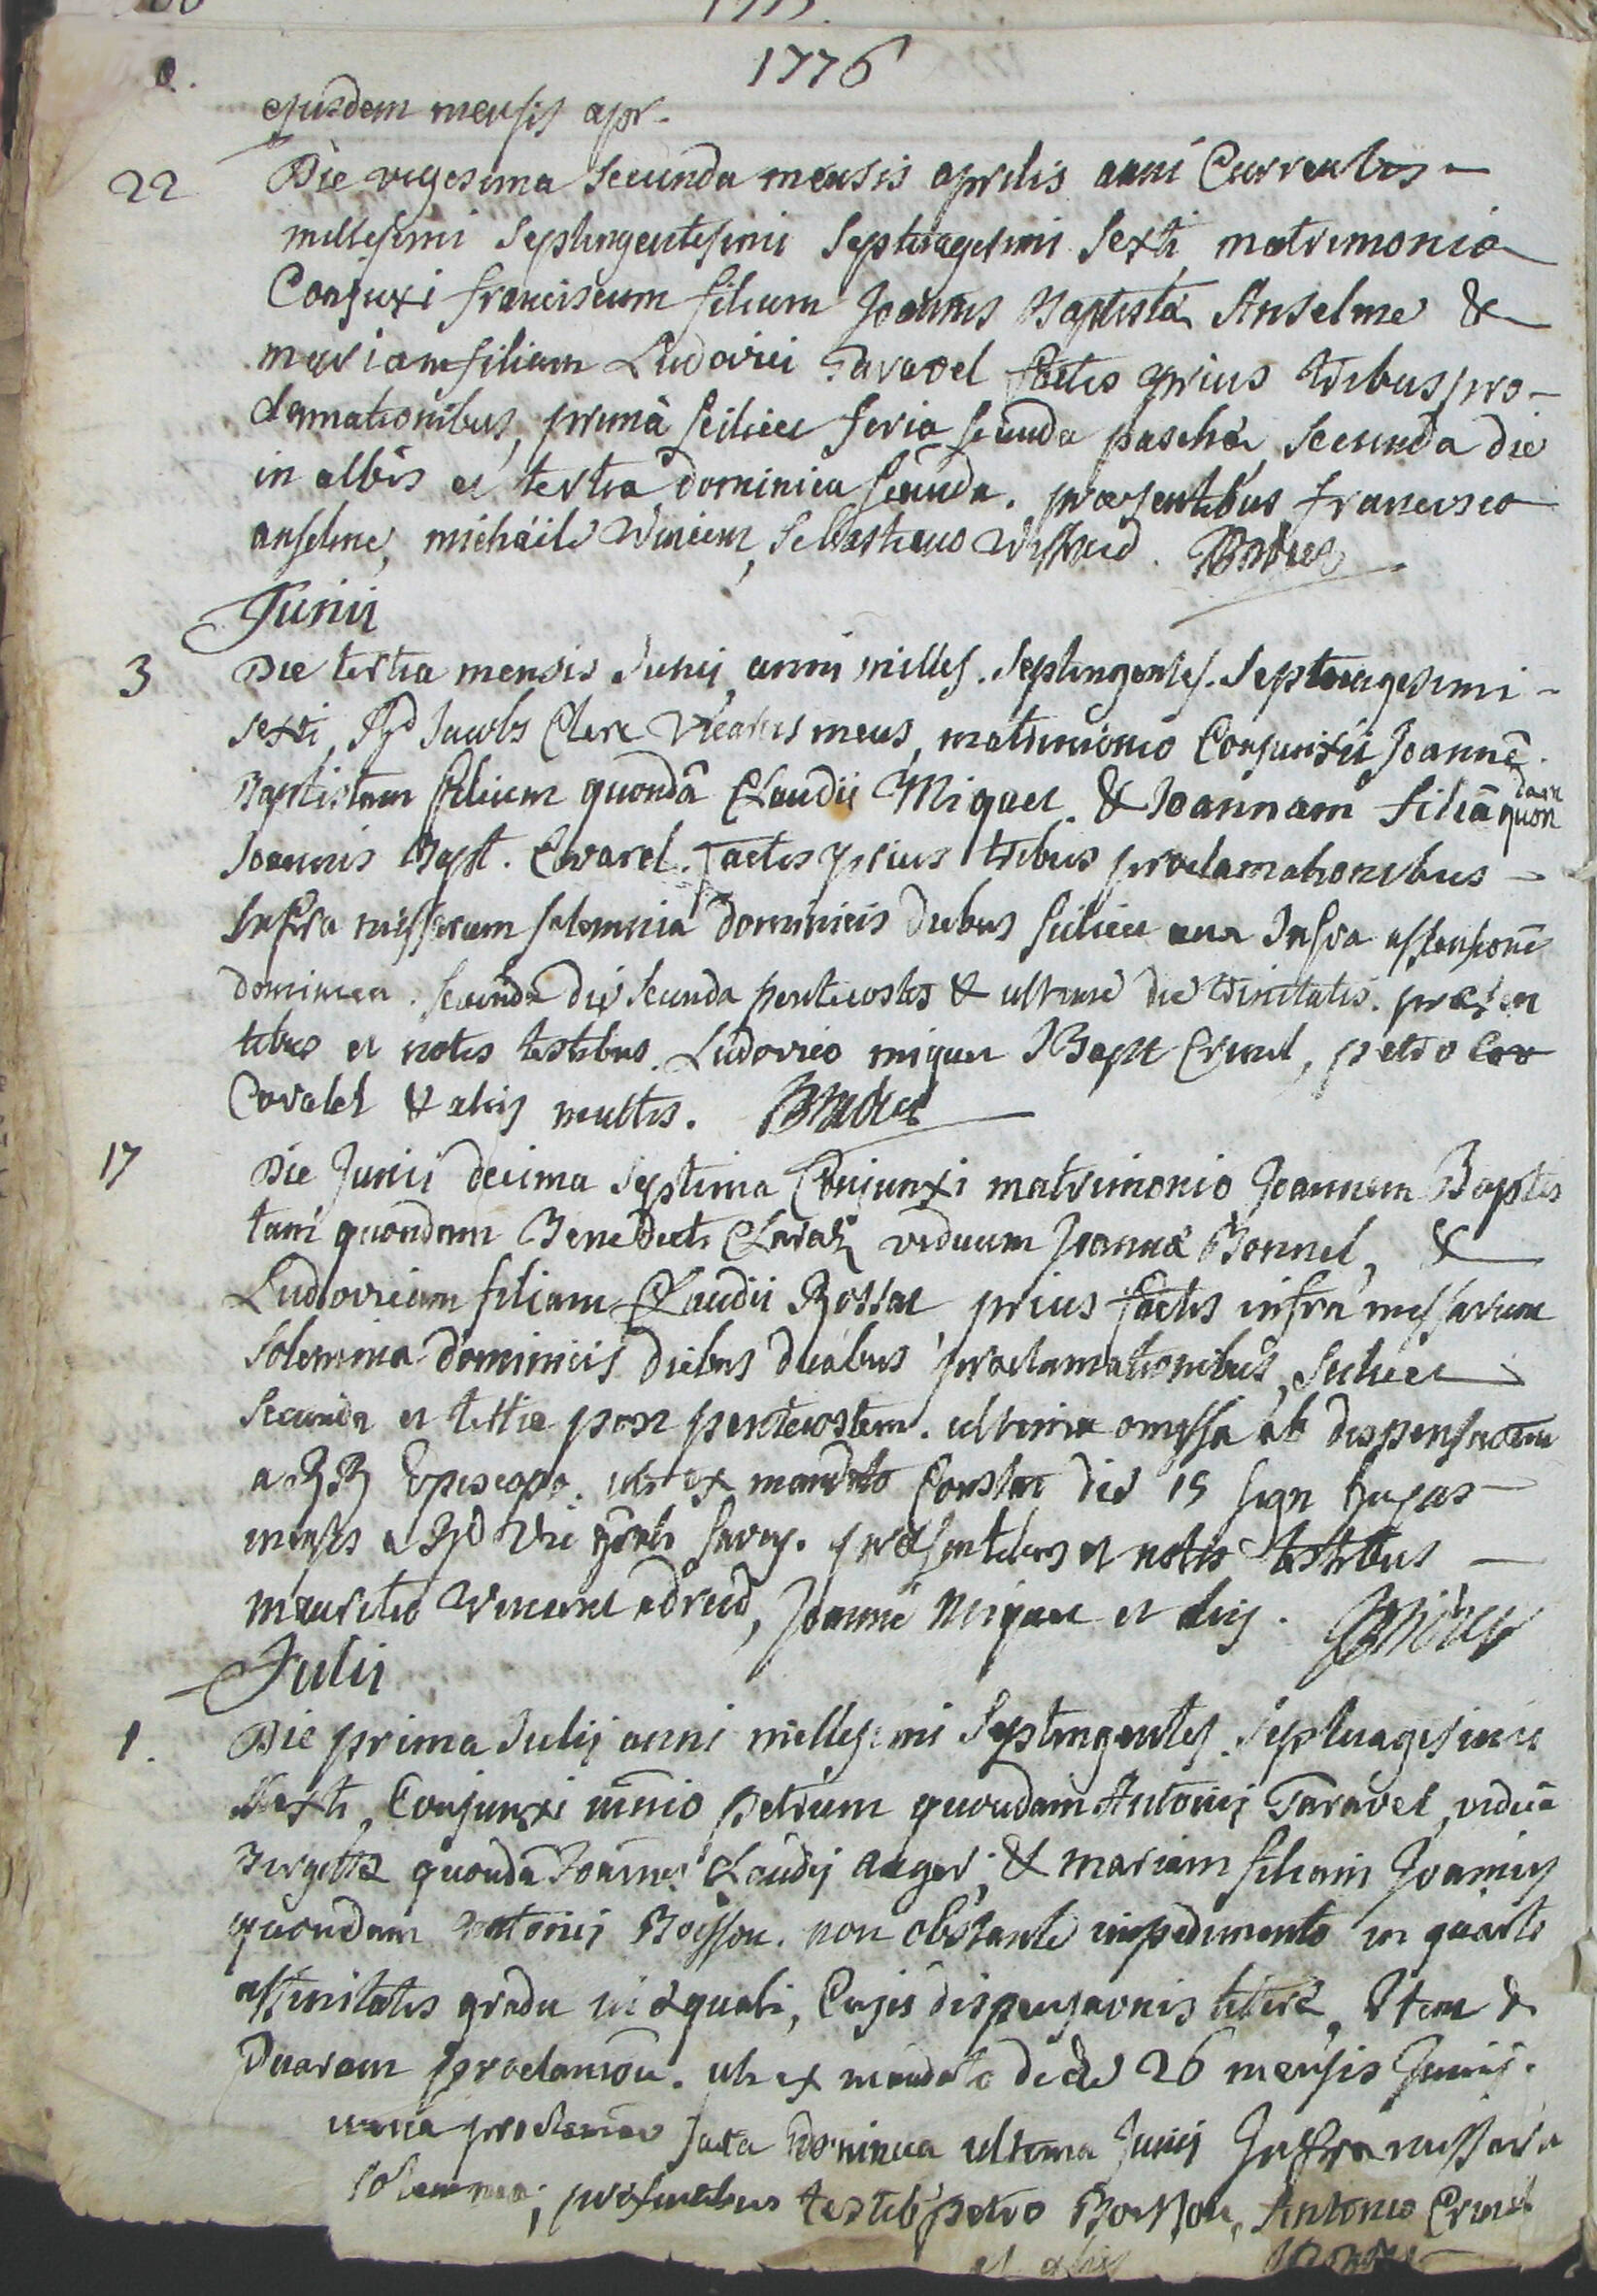 1775.
1776
ejusdem mensis apr.
22 Die vigesima Secunda mensis aprilis anni Currentis -
millesimi Septingentesimi Septuagesimi Sexti matrimonio
Conjuxi franciscum filium Joannis Baptistæ Anselme &
mariam filiam Ludovici Taravel factis prius tribus pro-
clamationibus, prima scilicet feria secunda paschæ, Secunda die
in albis et tertia dominica secunda. præsentibus francisco
anselme, michaele Vincent, Sebastiano
Junii
3 Die tertia mensis Junij anni milles. Septingentes. Septuagesimi -
sexti, Rd Jacobs Clerc Vicarius meus, matrimonio Conjunxit Joannē.
Baptistam filium quondā Claudii Miguet. & Joannam filiā quon dam
Joannis Bapt. Covarel. factis prius tribus proclamationibus -
Infra missarum solemnia dominicis diebus scilicet una Infra assensionē
dominica. secunda die secunda pentecostes & ultima die trinitatis. præsen
tibus et notis testibus. Ludovico miguet JBapt Crinel, petro Cov
Covalet & aliis multis.
17 Die Junii decima septima Conjunxi matrimonio Joannem Baptis
tam quondam Benedicti Claraz viduum Joannæ Bonnel, &
Ludovicam filiam Claudii Rossat prius factis infra missarum
solemnia dominicis diebus duabus proclamationibus, scilicet
Secunda et tertia post pentecostem. ultima omissa ob dispensaonem
a RR Episcopo. uti ex mandato Constat die 15 sign hujus -
mensis a Rd Vic gēnli præsentibus et notis testibus -
mauritio Vincent Joanne Miguet et aliis.
Julii
1. Die prima Julij anni millesimi Septingentes. Septuagesimi
Sexti, Conjunxi mnio petrum quondam Antonij Taravel, viduū
quondā Joannis Claudij auger, & mariam filiam Joannis
quondam Antonij Boisson. non obstante impedimento in quarto
affinitatis gradu inæquali, Cujus dispensaonis litteræ, Item &
Duarum proclamōn. uti ex mandato dicto die 26 mensis Junij.
unica facta Dominica ultima Junij Infra missaru
solemnia; præsentibus testib' petro Boisson, Antonio Crinel
et aliis